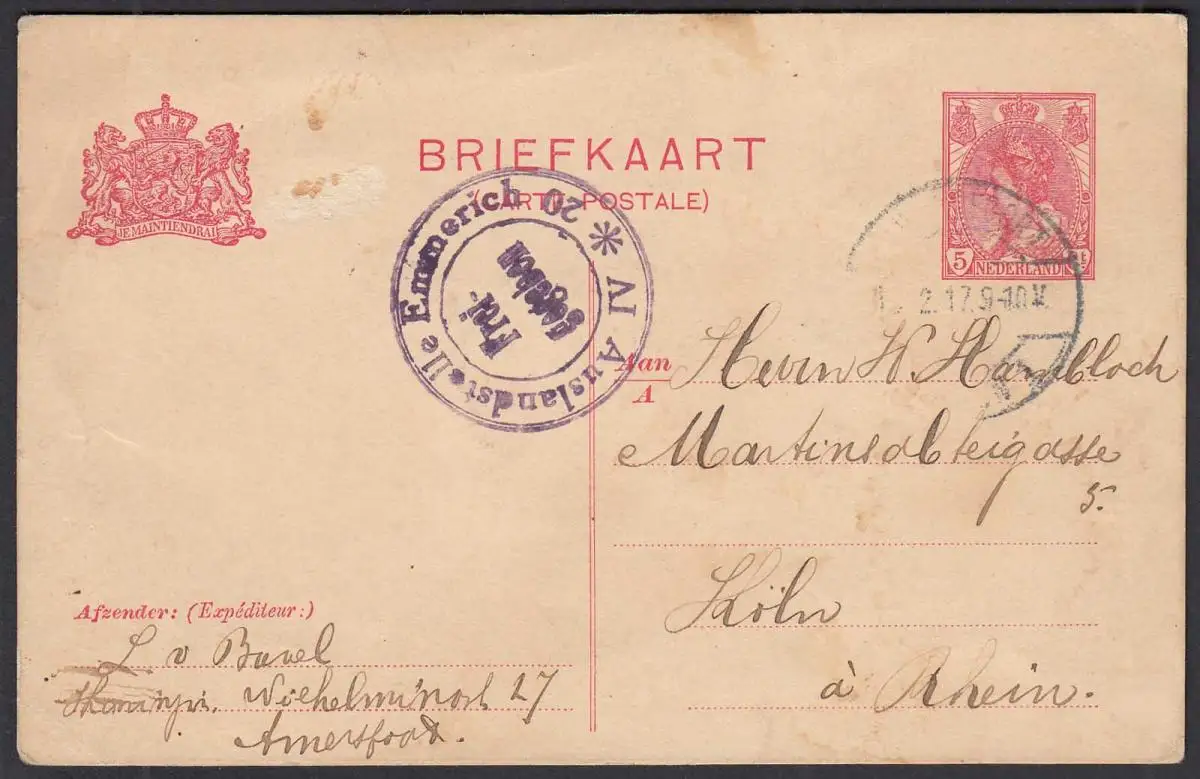 BRIEFKAART
(CARTE POSTALE)
JE MAINTIENDRAI
5
NEDERLAND
2.17.9-10V
* VI Auslandstelle Emmerich 20
Frei-
gegeben
Aan Herrn W Hambloch
A
Martinsabteigasse
5.
Köln
à Rhein.
Afzender: (Expéditeur:)
L v Bavel
Wilhelminast 27
Amersfoort.